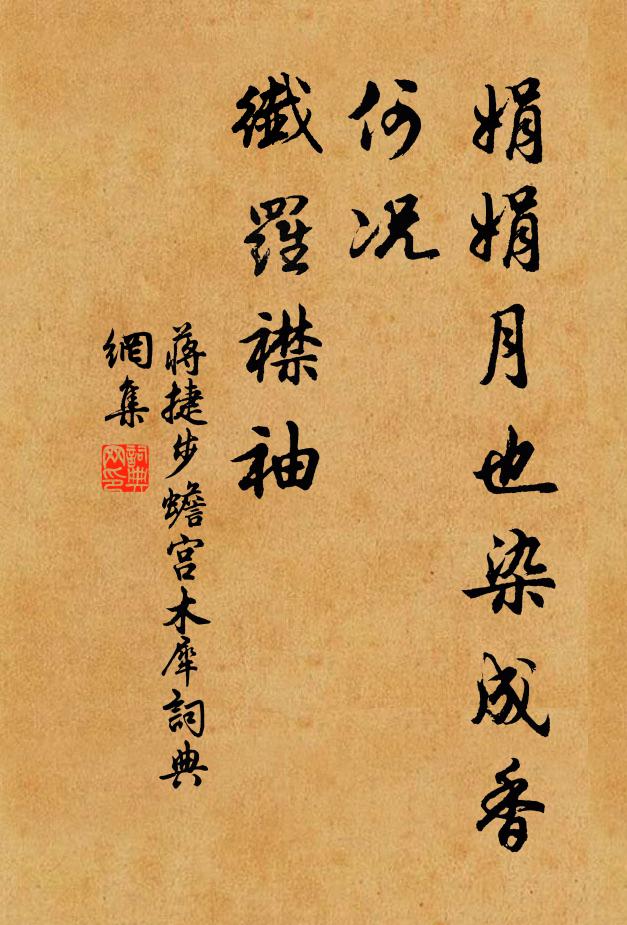 娟娟月也染成香
何况
纖羅襟袖
蔣捷步蟾宮木犀詞典
網集
詞典網印